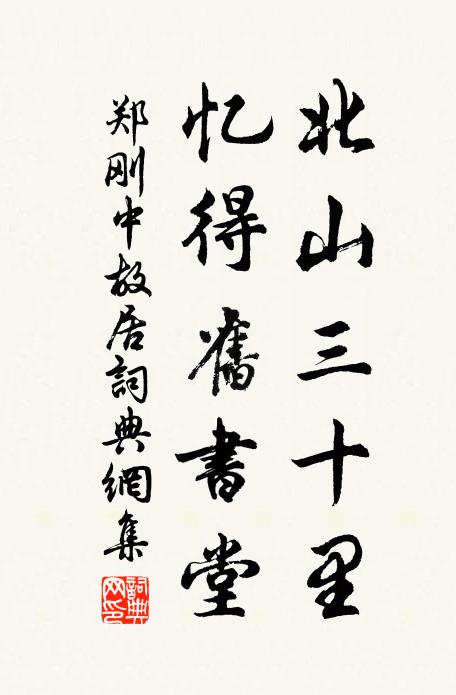 北山三十里
忆得舊書堂
郑刚中故居詞典網集
詞典网印